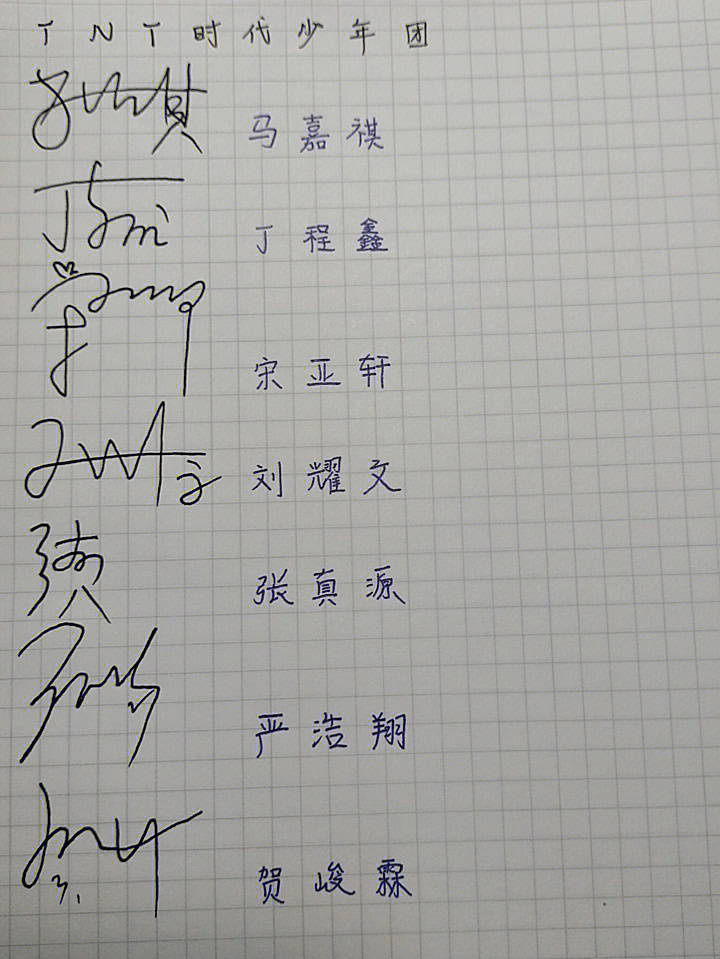 TNT时代少年团
马嘉祺
丁程鑫
宋亚轩
刘耀文
张真源
严浩翔
贺峻霖